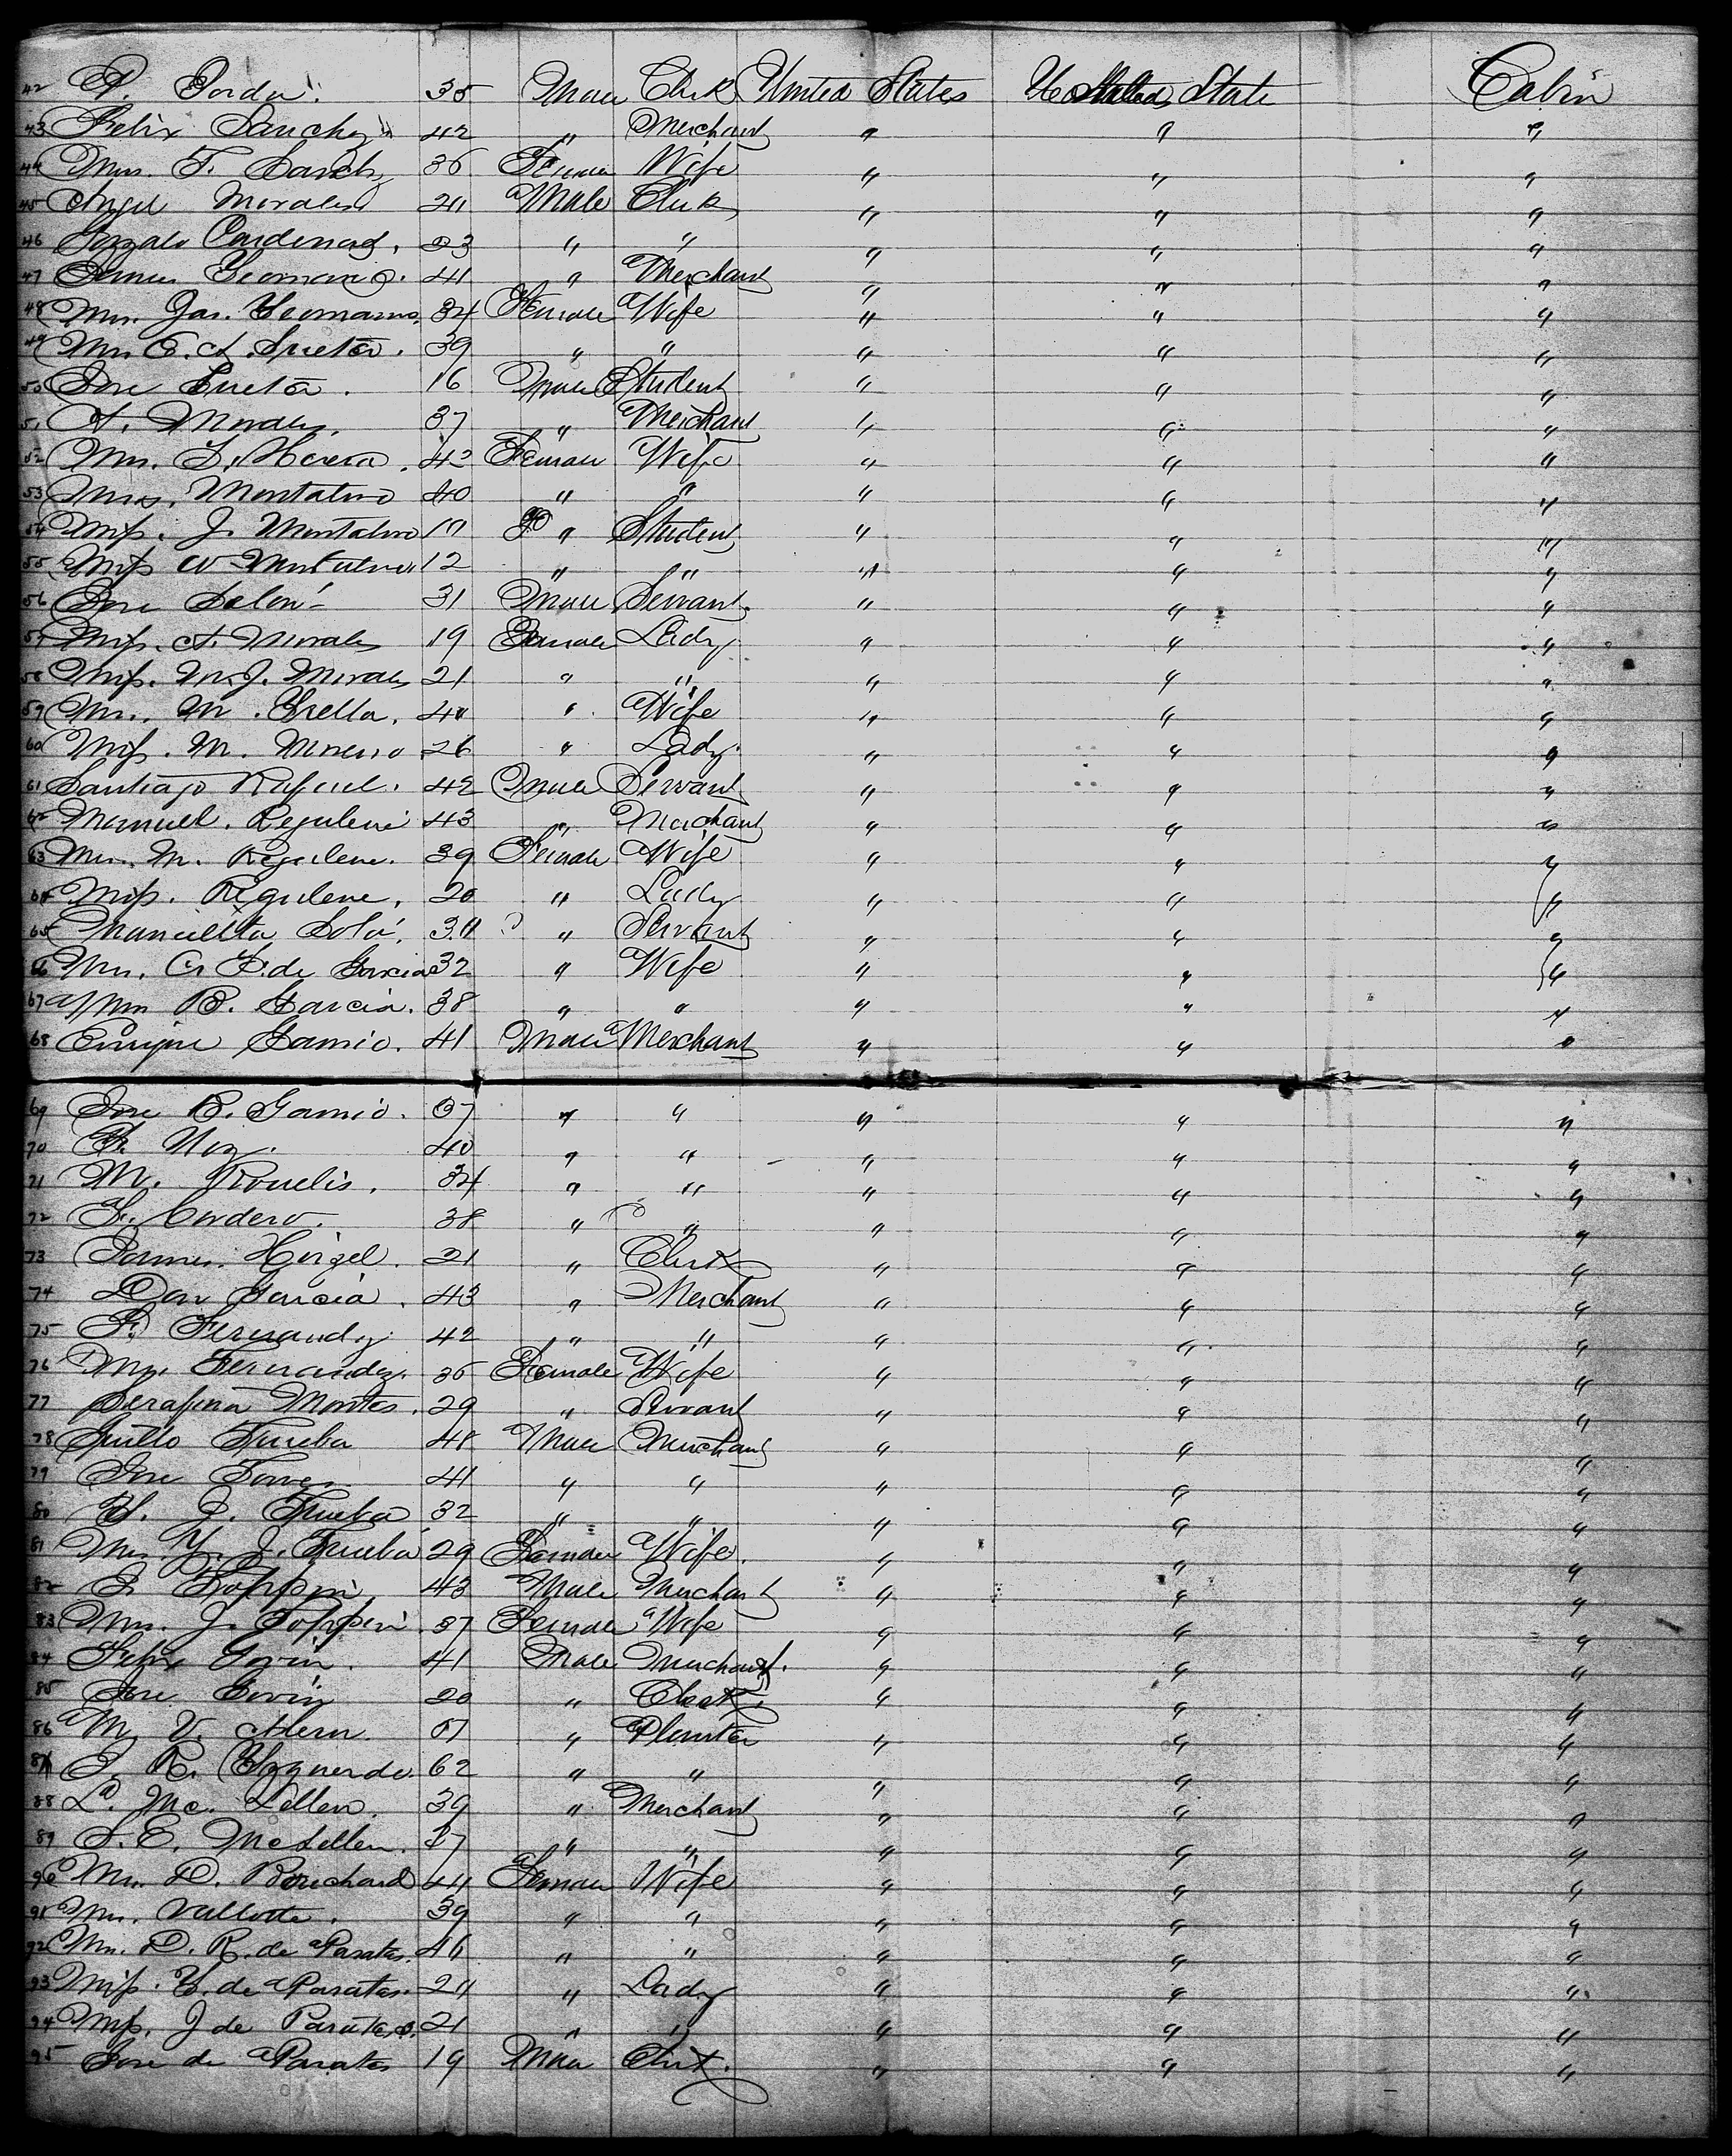 42 P. Jorda. 35 Male Clerk United States United State Cabin
43 Felix Sanchez 42 " Merchant " " "
44 Mrs. F. Sanch 36 Female Wife " " "
45 Angel Morales 24 Male Clerk " " "
46 Gozzalo Cardenas. 23 " " " " "
47 James Yeomans. 41 " Merchant " " "
48 Mrs. Jas. Yeomans. 34 Female Wife " " "
49 Mrs. E. A. 39 " " " " "
50 Jose 16 Male Student " " "
51 A. Morales. 37 " Merchant " " "
52 Mrs. 42 Female Wife " " "
53 Mrs. Montalvo 40 " " " " "
54 Miss. J. Montalvo 17 " Student " " "
55 Miss W Montalvo. 12 " " " " "
56 Jose 31 Male Servant. " " "
57 Miss. A. Morales 19 Female Lady " " "
58 Miss. M. J. Morales 21 " " " " "
59 Mrs. M. 40 " Wife " " "
60 Miss. M. 26 " Lady. " " "
61 Santiago Rafael. 42 Male Servant " " "
62 Manuel. Regulene 43 " Merchant " " "
63 Mrs. M. Regulene. 39 Female Wife " " "
64 Miss. Regulene. 20 " Lady " " "
65 Solá. " Servant " " "
66 Mrs. C. F. de Garcia 32 " Wife " " "
67 Mrs B. Garcia. 38 " " " " "
68 Enrique Gamio. 41 Male Merchant " " "
69 Jose B. Gamio. 37 " " " " "
70 40 " " " " "
71 M. 34 " " " " "
72 F. Cordero. 38 " " " " "
73 James. 21 " Clerk " " "
74 Don Garcia. 43 " Merchant " " "
75 P. Fernandz. 42 " " " " "
76 Mrs. Fernandez. 36 Female Wife " " "
77 Serafina Montes. 29 " Servant " " "
78 Trueba 48 Male Merchant " " "
79 Jose Torres 41 " " " " "
80 Y. J. Trueba 32 " " " " "
81 Mrs. Y. J. Trueba 29 Female Wife. " " "
82 J. 43 Male Merchant " " "
83 Mrs. J. 37 Female Wife " " "
84 Felix Govin. 41 Male Merchant. " " "
85 Jose Govin 20 " Clerk " " "
86 M. V. 57 " Planter " " "
87 J. R. 62 " " " " "
88 D. Mc. Lellen. 39 " Merchant " " "
89 S. E. McLellen. 37 " " " " "
90 Mrs. D. Bouchard 44 Female Wife " " "
91 Mrs. Vallotte. 39 " " " " "
92 Mrs. D. R. de Paratas. 46 " " " " "
93 Miss. Y. de Paratas. 24 " Lady " " "
94 Miss. J de Paratas. 21 " " " " "
95 Jose de Paratas 19 Male Clerk. " " "